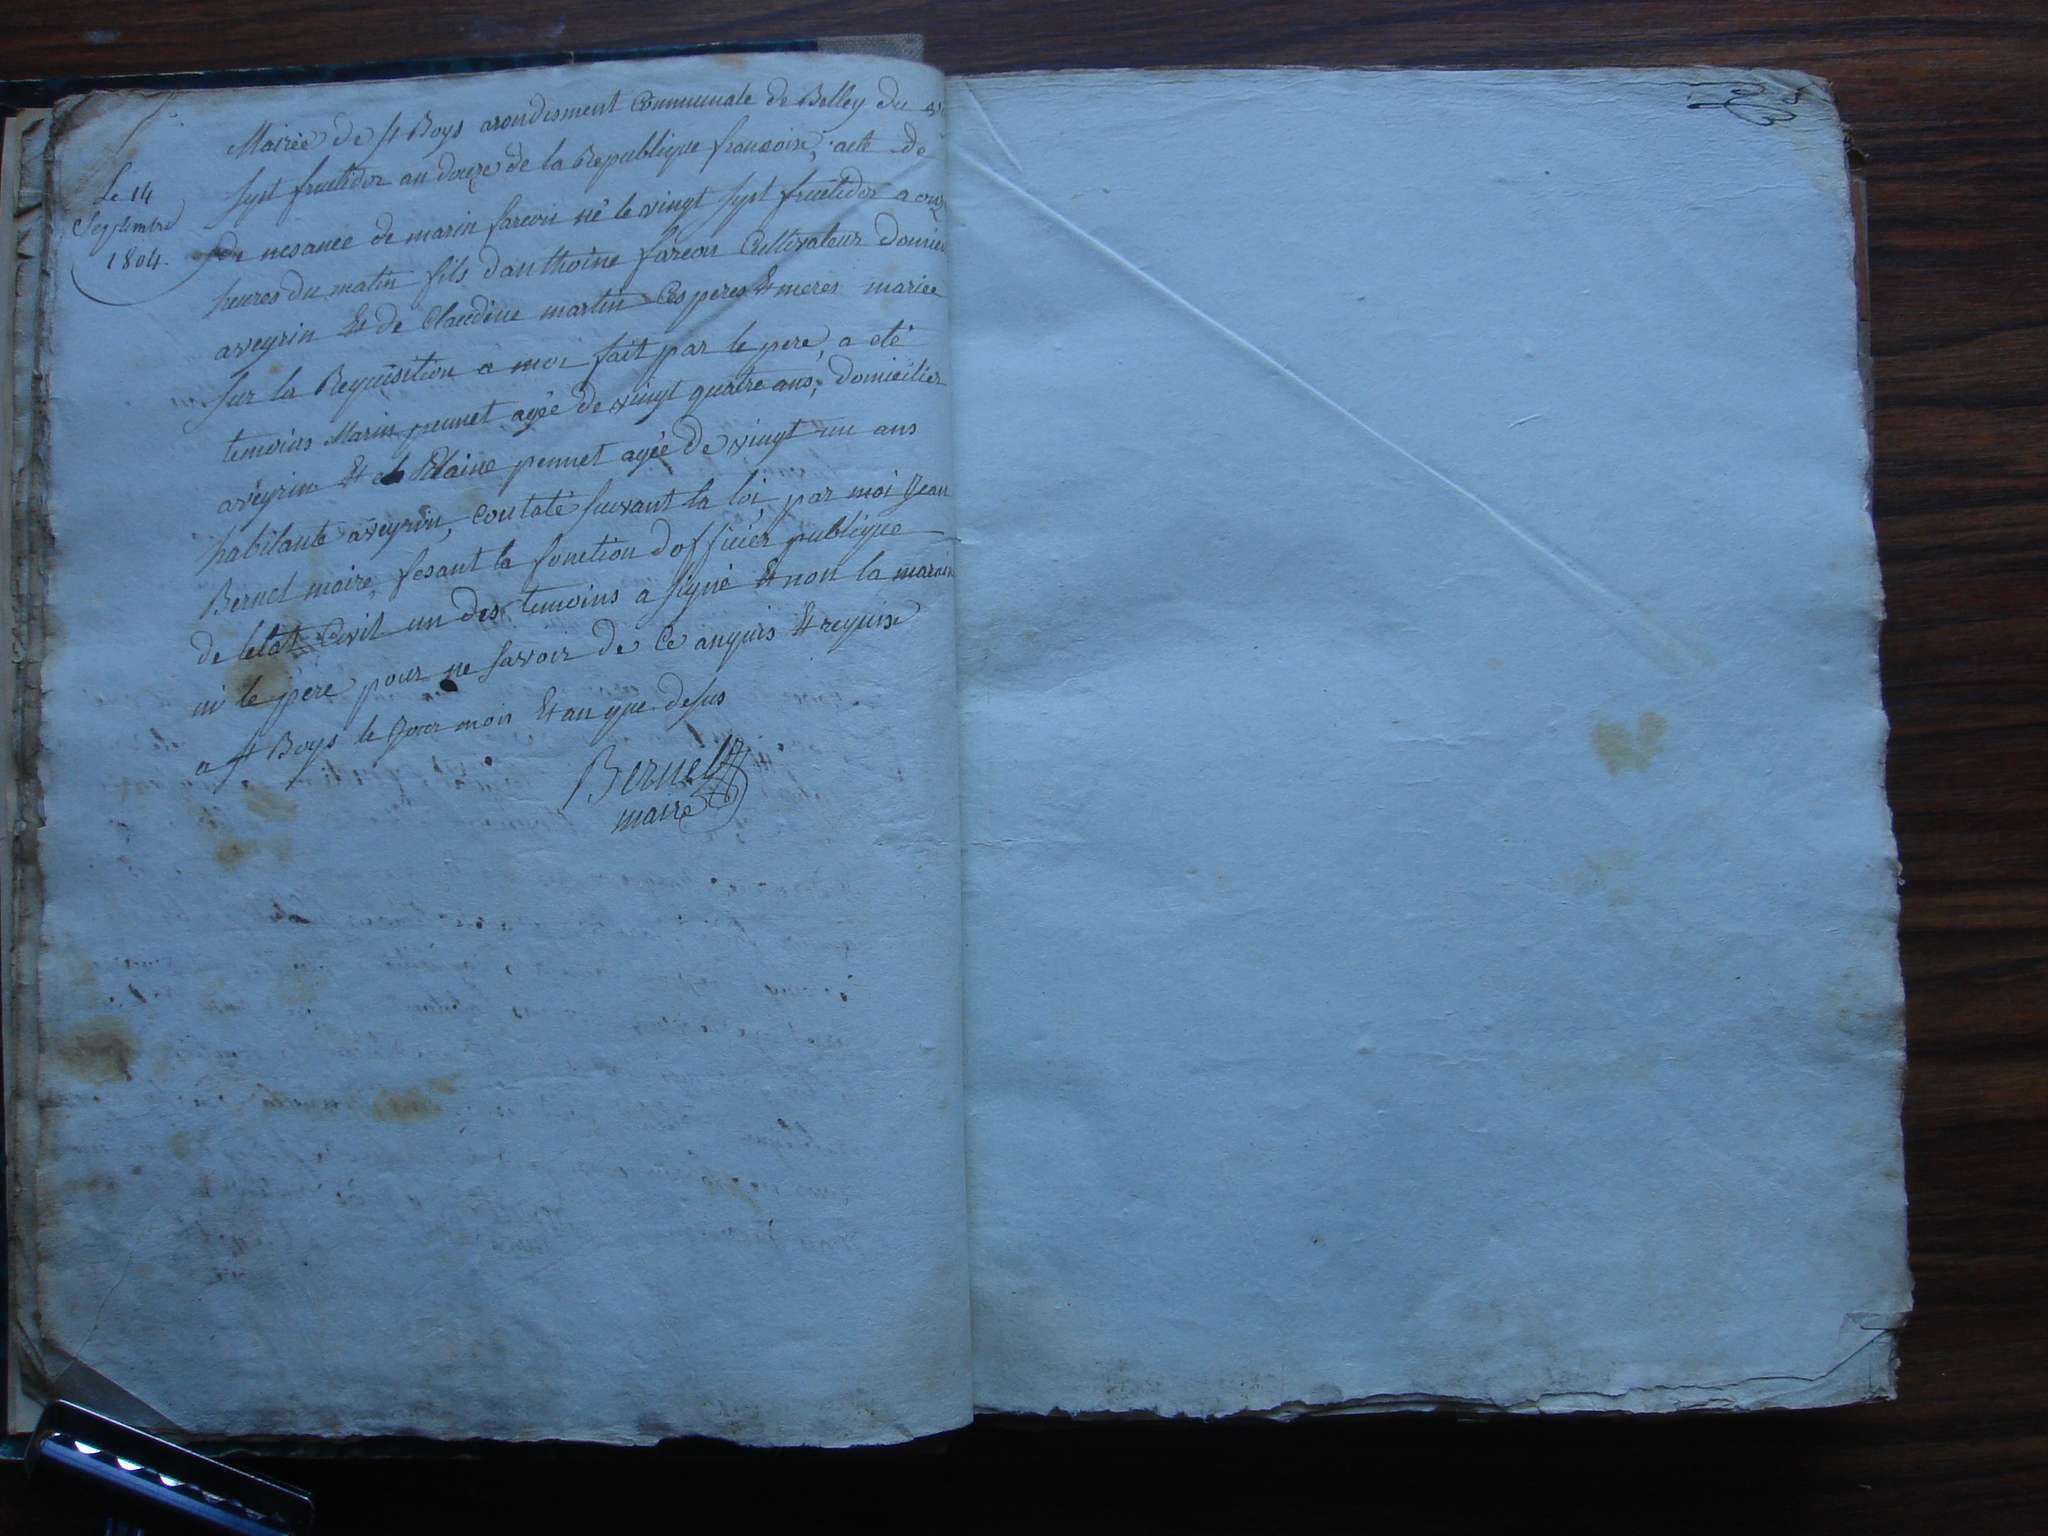 Le 14
Septembre
1804.
Mairie de St Boys arondisment Communale de Belley du
sept fructidor an douze de la Republique francoise, acte de
nesance de marin fareon né le vingt sept fructidor a onze
heures du matin fils d'anthoine fareon Cultivateur
aveyrin Et de Claudine martin Ces peres Et meres mariée
sur la Requisition a moi fait par le pere, a eté
temoins Marin pennet agée de vingt quatre ans, domicilier
aveyrin Et pennet agée de vingt un ans
habitante aveyrin, contaté suivant la loi, par moi Jean
Bernel maire, fesant la fonction dofficier publique
de letat Civil un des temoins a signé Et non la
ni le pere pour ne savoir de Ce anquis Et requise
a St Boys le Jour mois Et an que desus
Bernel
maire